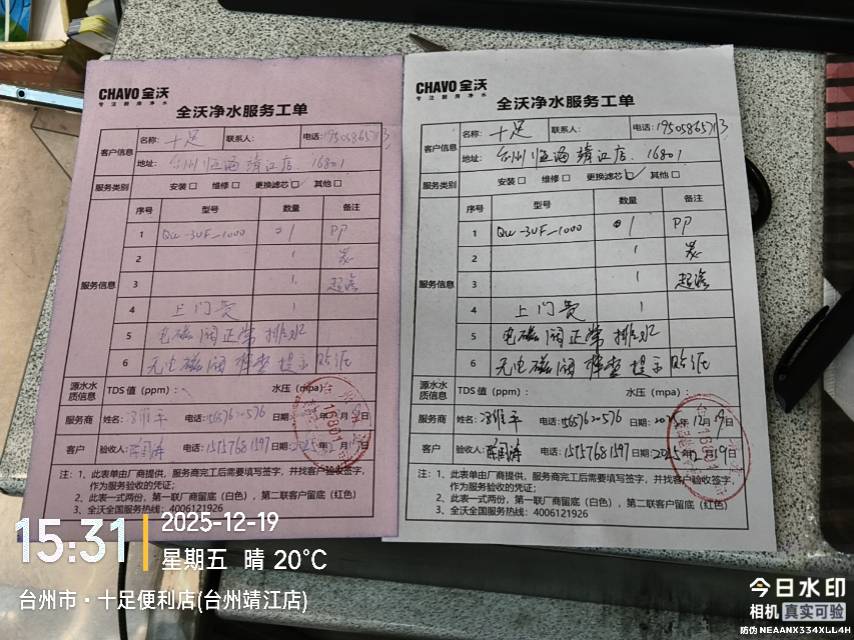 CHAVO 全沃
专注厨房净水
全沃净水服务工单
客户信息
名称: 十足 联系人: 电话: 19505865713
地址: 台州 靖江店 16801
服务类别 安装□ 维修□ 更换滤芯□ 其他□
服务信息
序号 型号 数量 备注
1 QW-3UF-1000 1 PP
2 1 炭
3 1 超滤
4 上门费 1
5 电磁阀正常排水
6 无电磁阀 提示
源水水质信息 TDS 值（ppm）: 水压（mpa）:
服务商 姓名: 电话: 日期: 年 月 日
客户 验收人: 电话: 15157681597 日期: 2025年12月19日
注：1、此表单由厂商提供，服务商完工后需要填写签字，并找客户验收签字，
作为服务验收的凭证；
2、此表一式两份，第一联厂商留底（白色），第二联客户留底（红色）
3、全沃全国服务热线：4006121926
CHAVO 全沃
专注厨房净水
全沃净水服务工单
客户信息
名称: 十足 联系人: 电话: 19505865713
地址: 台州 靖江店. 16801
服务类别 安装□ 维修□ 更换滤芯□ 其他□
服务信息
序号 型号 数量 备注
1 QW-3UF-1000 1 PP
2 1 炭
3 1 超滤
4 上门费 1
5 电磁阀正常排水
6 无电磁阀 提示
源水水质信息 TDS 值（ppm）: 水压（mpa）:
服务商 姓名: 电话: 日期: 2025年12月19日
客户 验收人: 电话: 15157681597 日期: 2025年12月19日
注：1、此表单由厂商提供，服务商完工后需要填写签字，并找客户验收签字，
作为服务验收的凭证；
2、此表一式两份，第一联厂商留底（白色），第二联客户留底（红色）
3、全沃全国服务热线：4006121926
15:31
2025-12-19
星期五 晴 20°C
台州市·十足便利店(台州靖江店)
今日水印
相机 真实可验
防伪 NEAANX334XLL4H